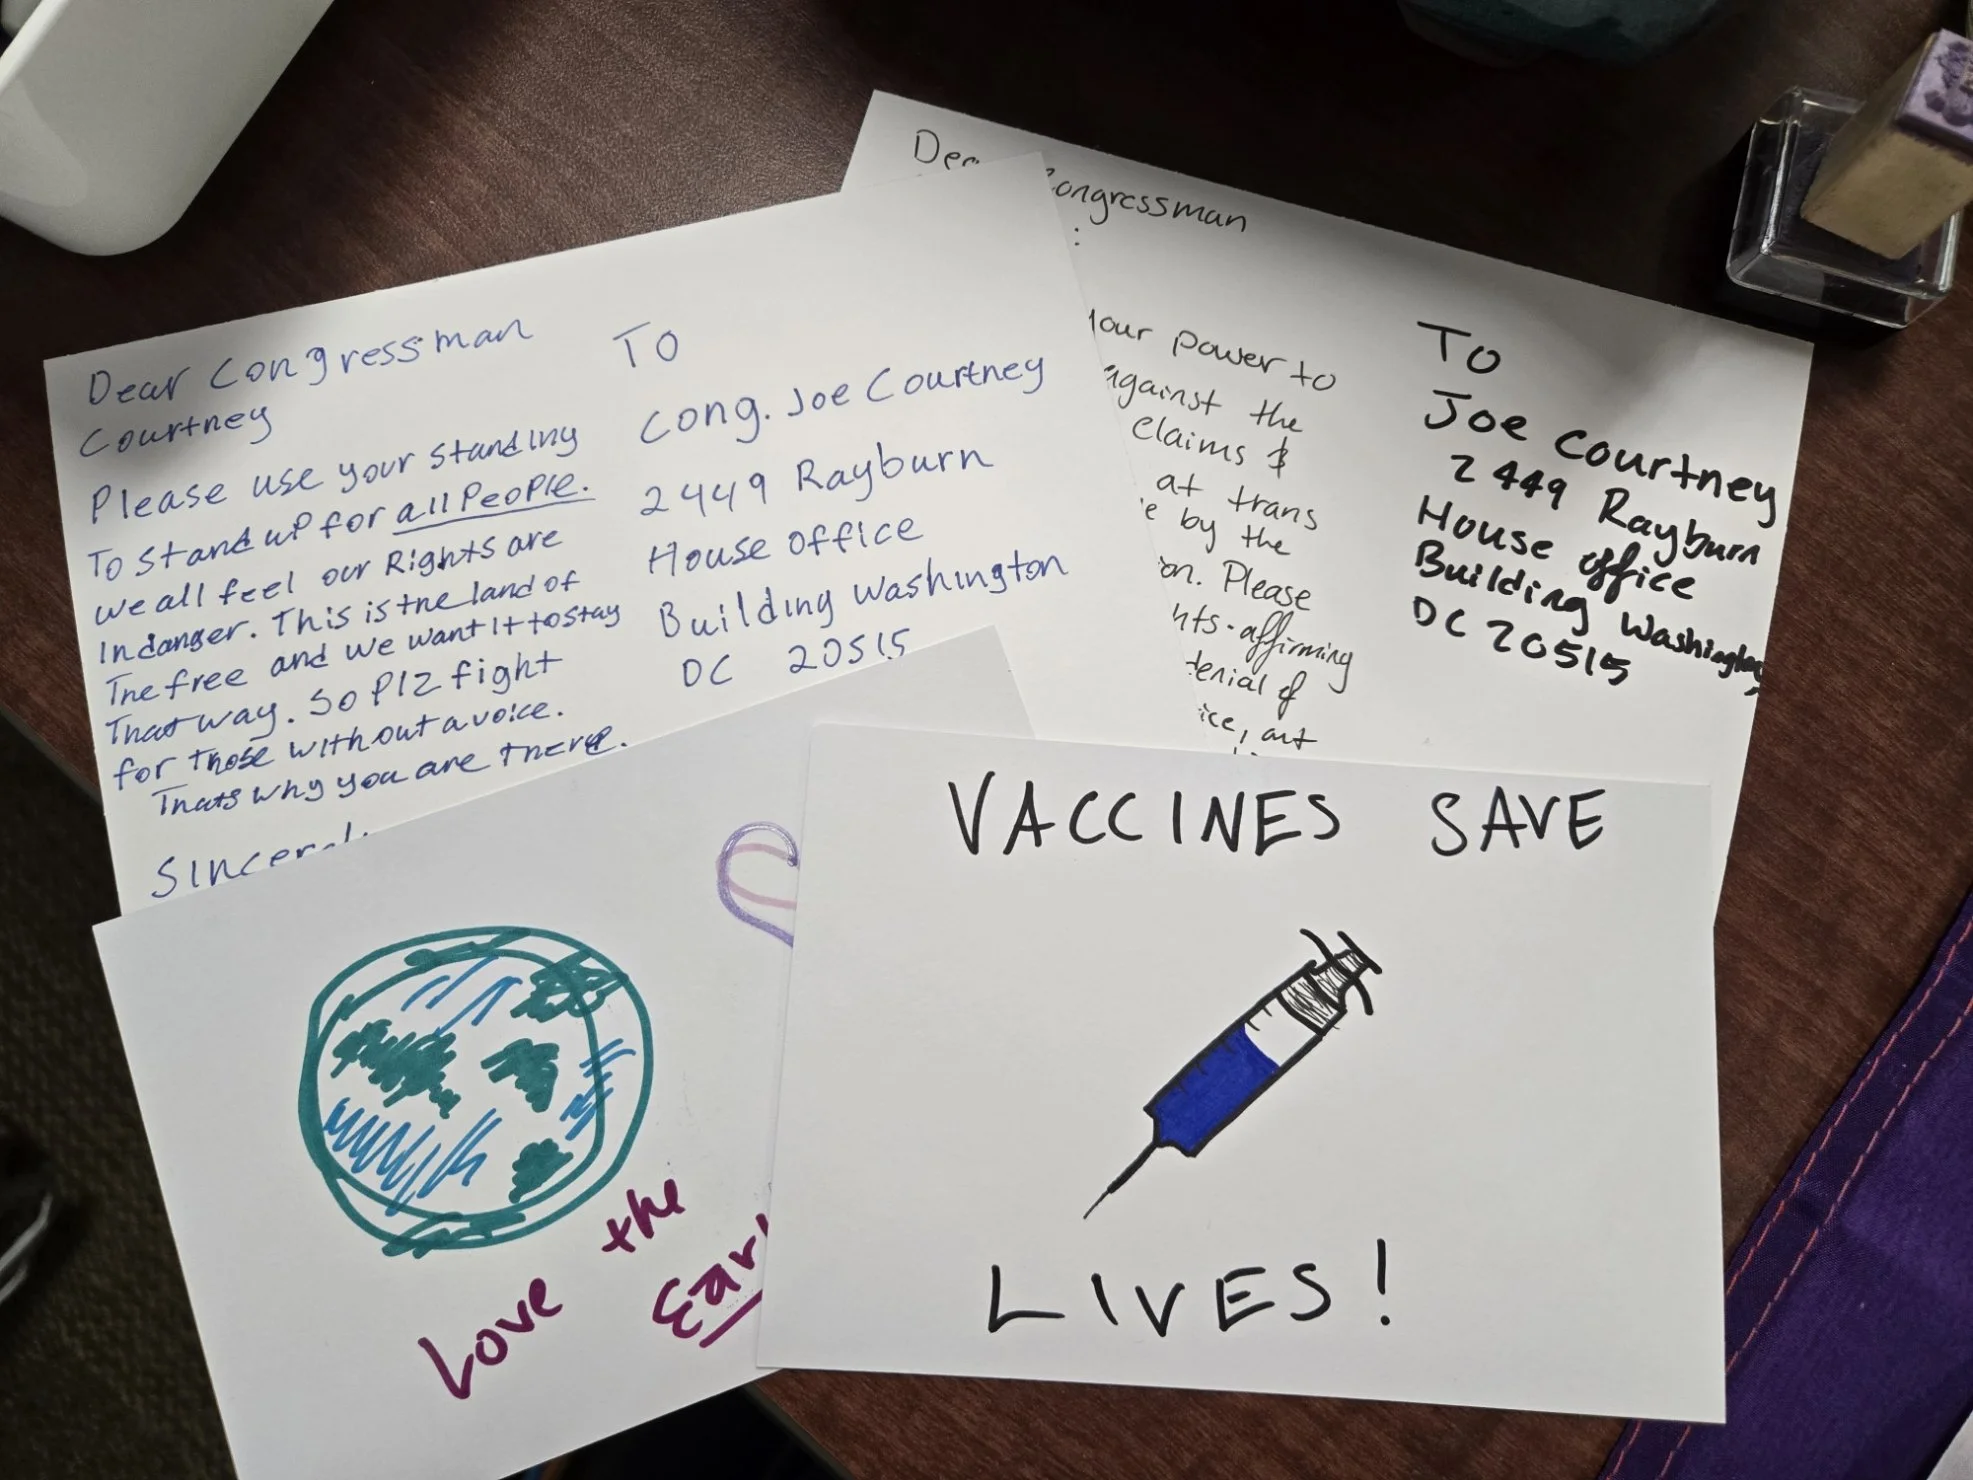 Dear Congressman
Courtney
Please use your standing
To stand up for all People.
we all feel our Rights are
In danger. This is the land of
The free and we want it to stay
That way. So Plz fight
for those without a voice.
Thats why you are there.
To
Cong. Joe Courtney
2449 Rayburn
House office
Building Washington
DC 20515
Congressman
:
your power to
against the
claims &
at trans
by the
Please
affirming
denial of
art
To
Joe Courtney
2449 Rayburn
House office
Building Washington,
DC 20515
Love the
VACCINES SAVE
LIVES!